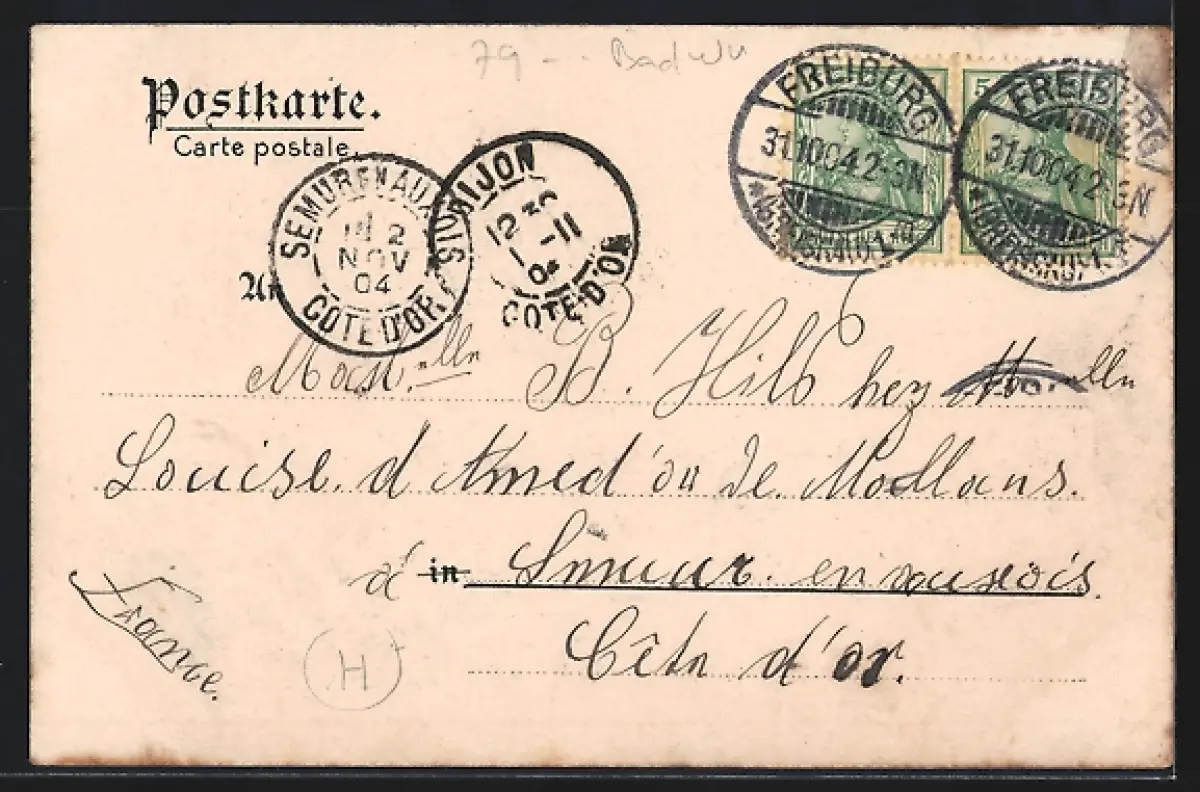 79 - . . Bad
Postkarte.
Carte postale.
FREIBURG
31.10.04.2-3N
*(BREISGAU)1.*d
FREIBURG
31.10.04.2-3N
*(BREISGAU)1.
SEMUR EN AUXOIS
2
NOV
04
COTE D'OR
DIJON
12 30
1 -11
04
COTE-D'OR
An
B. Hils chez M elle
Louise. d de Mollans.
à in Sémur. en auxois
Côte d'or.
France.
H